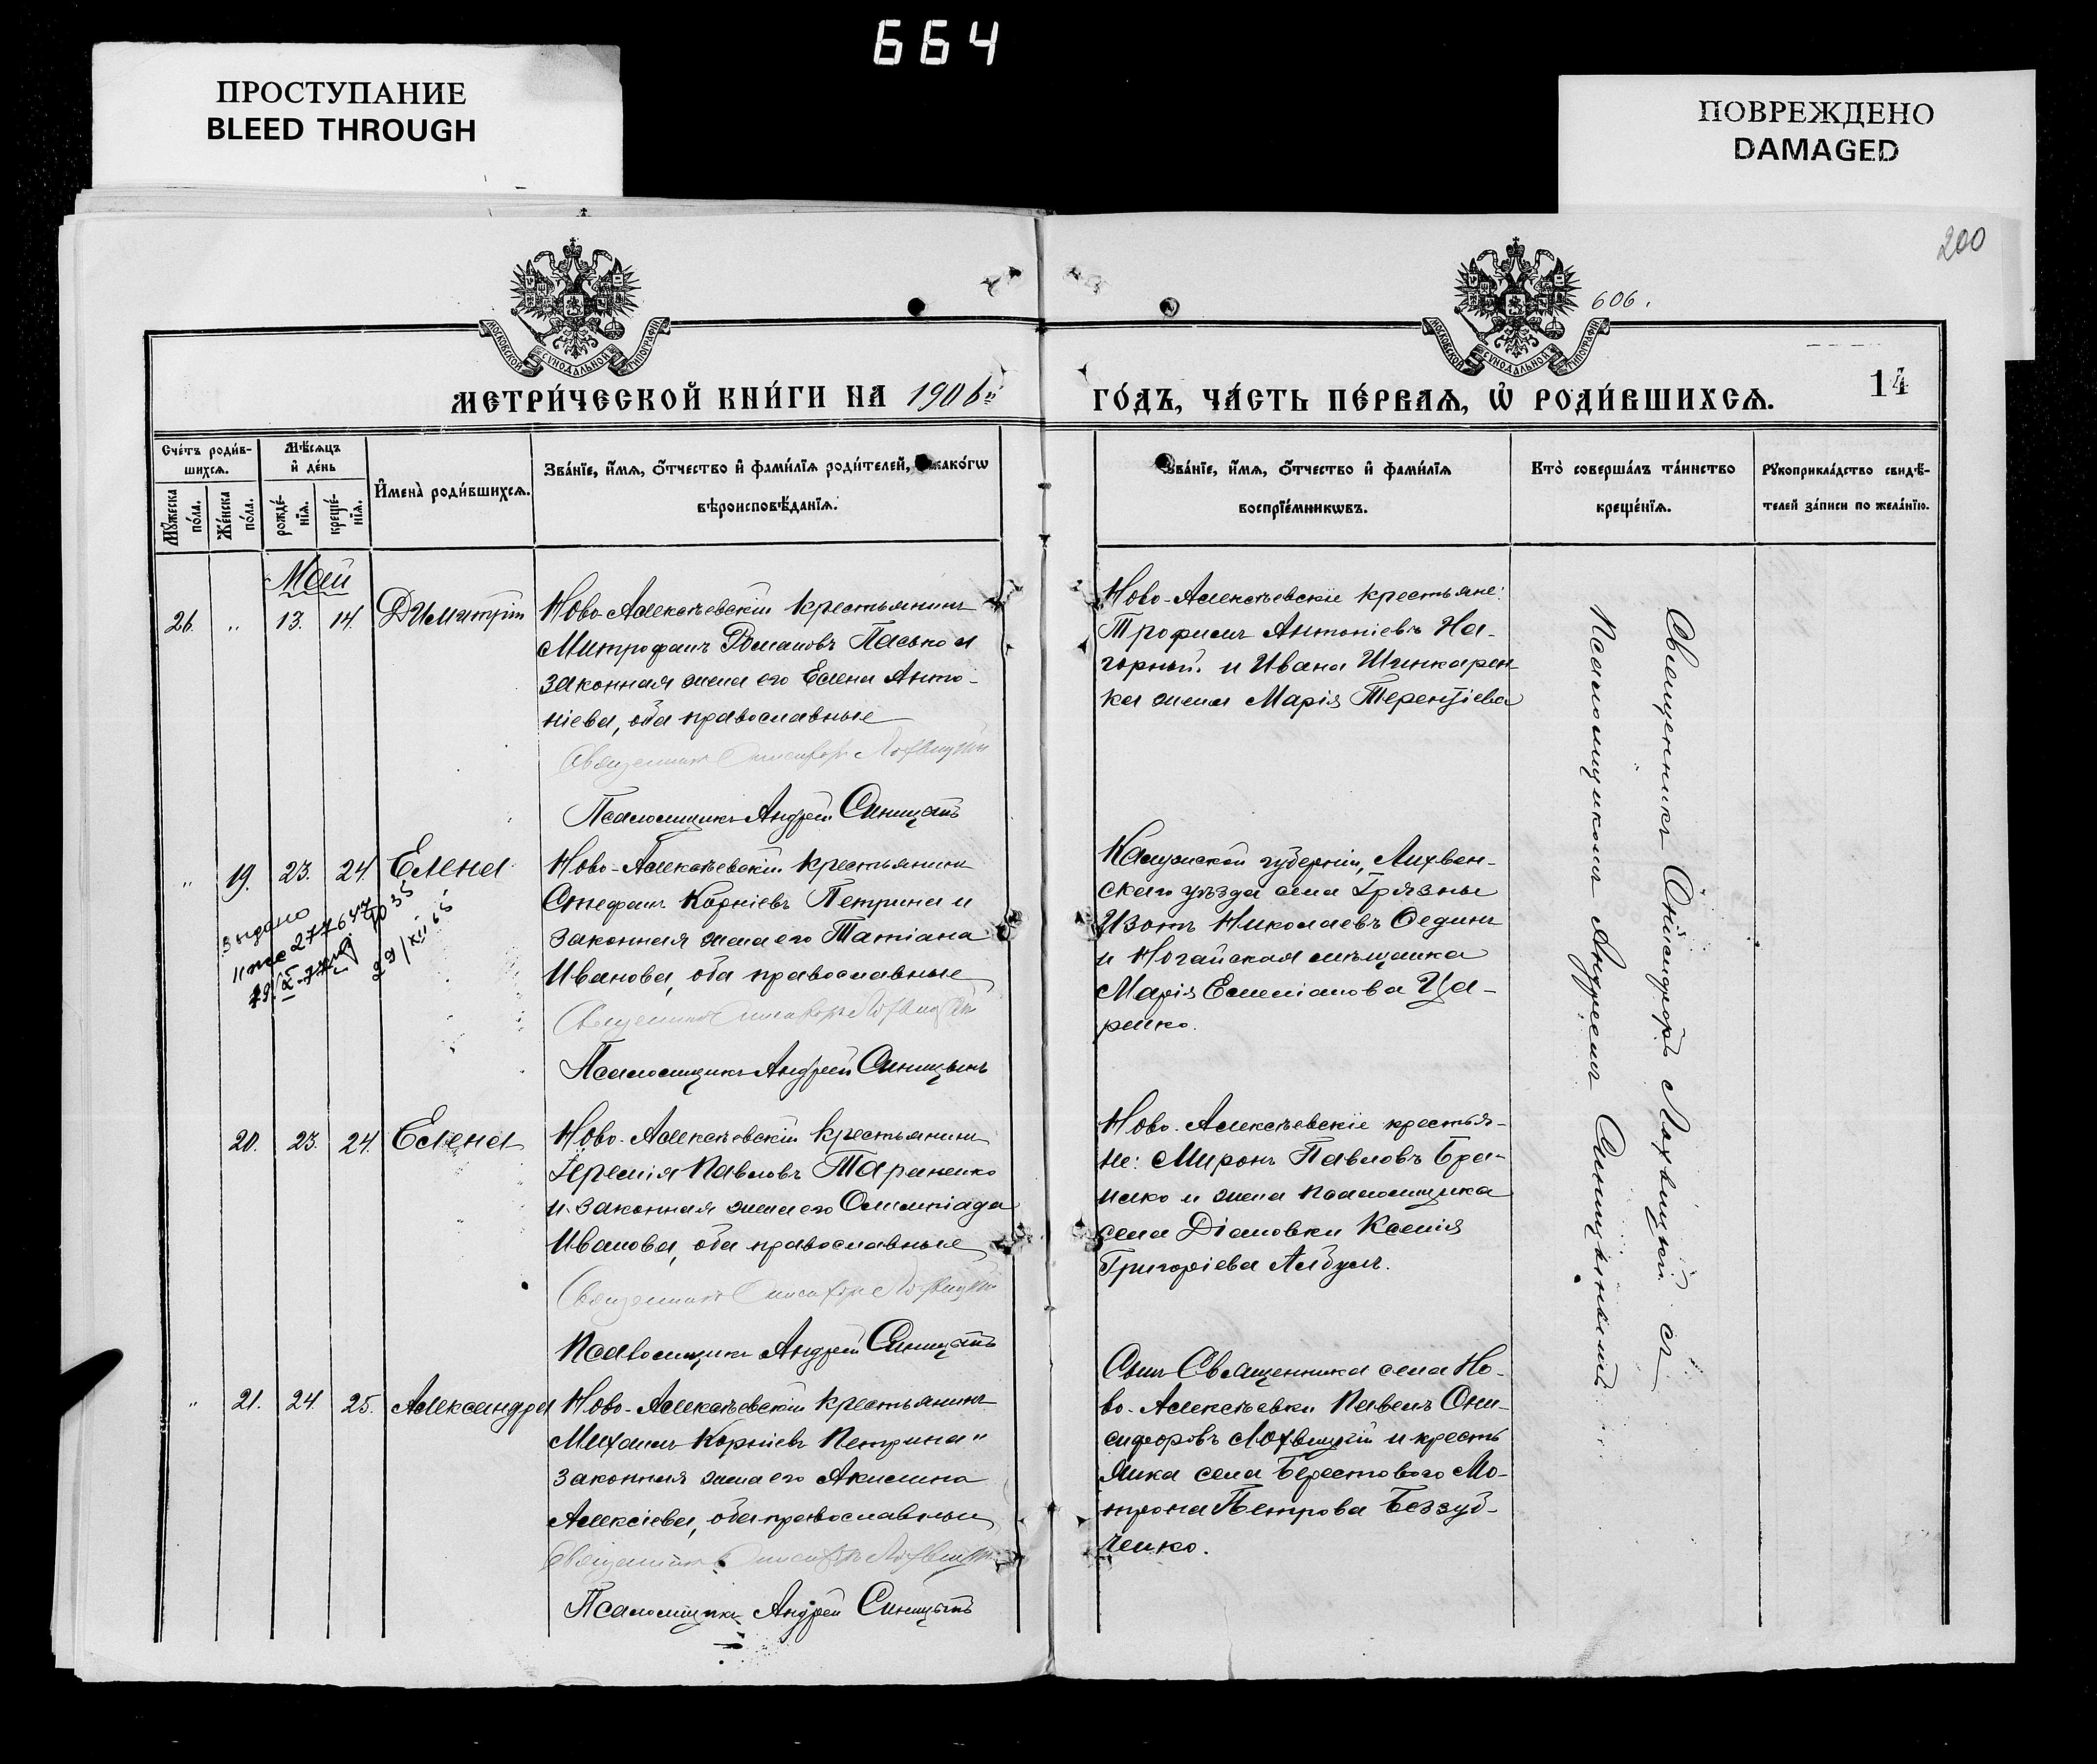 664
ПРОСТУПАНИЕ
BLEED THROUGH
ПОВРЕЖДЕНО
DAMAGED
200
606.
МОСКОВСКОЙ СѴНОДАЛЬНОЙ ТИПОГРАФІИ
МОСКОВСКОЙ СѴНОДАЛЬНОЙ ТИПОГРАФІИ
МЕТРИ́ЧЕСКОЙ КНИ́ГИ НА 1906й
ГО́ДЪ, ЧА́СТЬ ПЕ́РВАѦ, Ѡ҆ РОДИ́ВШИХСѦ.
14
Сче́тъ роди́в-
шихсѧ.
Мꙋ́жеска
по́ла.
Же́нска
по́ла.
Мѣ́сѧцъ
и҆ де́нь
рожде́-
нїѧ.
креще́-
нїѧ.
И҆мена̀ роди́вшихсѧ.
Зва́нїе, и҆́мѧ, ѻ҆́тчество и҆ фами́лїѧ роди́телей, како́гѡ
вѣроисповѣ́данїѧ.
Зва́нїе, и҆́мѧ, ѻ҆́тчество и҆ фами́лїѧ
воспрїе́мникѡвъ.
Кто̀ соверша́лъ та́инство
креще́нїѧ.
Рꙋкоприкла́дство свидѣ́-
телей за́писи по жела́нїю.
Май
26. „ 13. 14. Димитрій
Ново-Алексѣевскій крестьянинъ
Митрофанъ Романовъ Пасько и
законная жена его Елена Анто-
ніева, оба православные
Священникъ Онисифоръ Лохвицкій
Псаломщикъ Андрей Синицынъ
Ново-Алексѣевскіе крестьяне:
Трофимъ Антоніевъ На-
горный. и Ивана Шинкарен-
ка жена Марія Терентіева
„ 19. 23. 24. Елена
Ново-Алексѣевскій крестьянинъ
Стефанъ Корніевъ Петрина и
законная жена его Татіана
Иванова, оба православные
Священникъ Онисифоръ Лохвицкій
Псаломщикъ Андрей Синицынъ
29/XII 65
Калужской губерніи, Лихвен-
скаго уѣзда села Грязны
Изотъ Николаевъ Сединъ
и Ногайская мѣщанка
Марія Емеліанова Ца-
ренко.
20. 23. 24. Елена
Ново-Алексѣевскій крестьянинъ
Іеремія Павловъ Тараненко
и законная жена его Олимпіада
Иванова, оба православные
Священникъ Онисифоръ Лохвицкій
Псаломщикъ Андрей Синицынъ
Ново-Алексѣевскіе крестья-
не: Миронъ Павловъ Бра-
илко и жена псаломщика
села Діановки Ксенія
Григоріева Албулъ.
„ 21. 24. 25. Александра
Ново-Алексѣевскій крестьянинъ
Михаилъ Корніевъ Петрина и
законная жена его Акилина
Алексіева, оба православные
Священникъ Онисифоръ Лохвицкій
Псаломщикъ Андрей Синицынъ
Сынъ Священника села Но-
во-Алексѣевки Павелъ Они-
сифоровъ Лохвицкій и кресть
янка села Берестового Мо-
трона Петрова Беззуб-
ченко.
Священникъ Онисифоръ Лохвицкій съ
Псаломщикомъ Андреемъ Синицынымъ